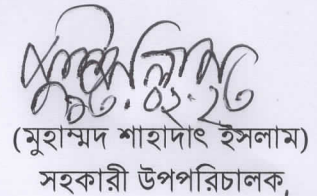 (মুহাম্মদ শাহাদাৎ ইসলাম)
সহকারী উপপরিচালক